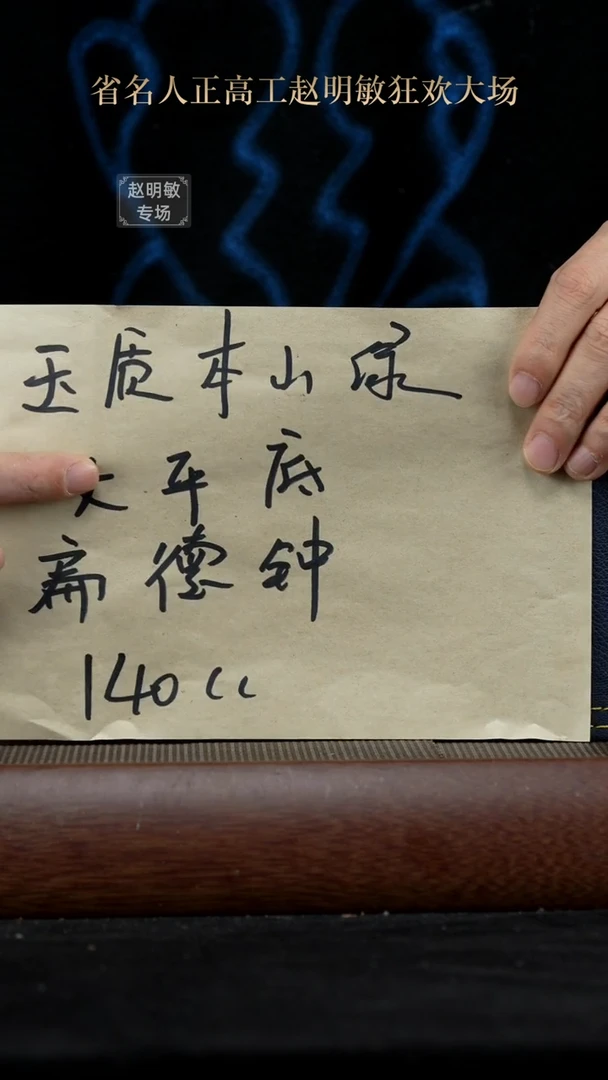 省名人正高工赵明敏狂欢大场
赵明敏
专场
玉质本山绿
大平底
扁德钟
140cc